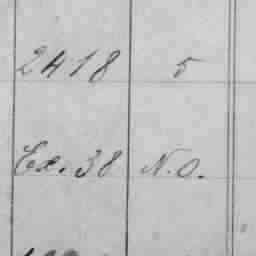 2418 5
Ex. 38 N.O.